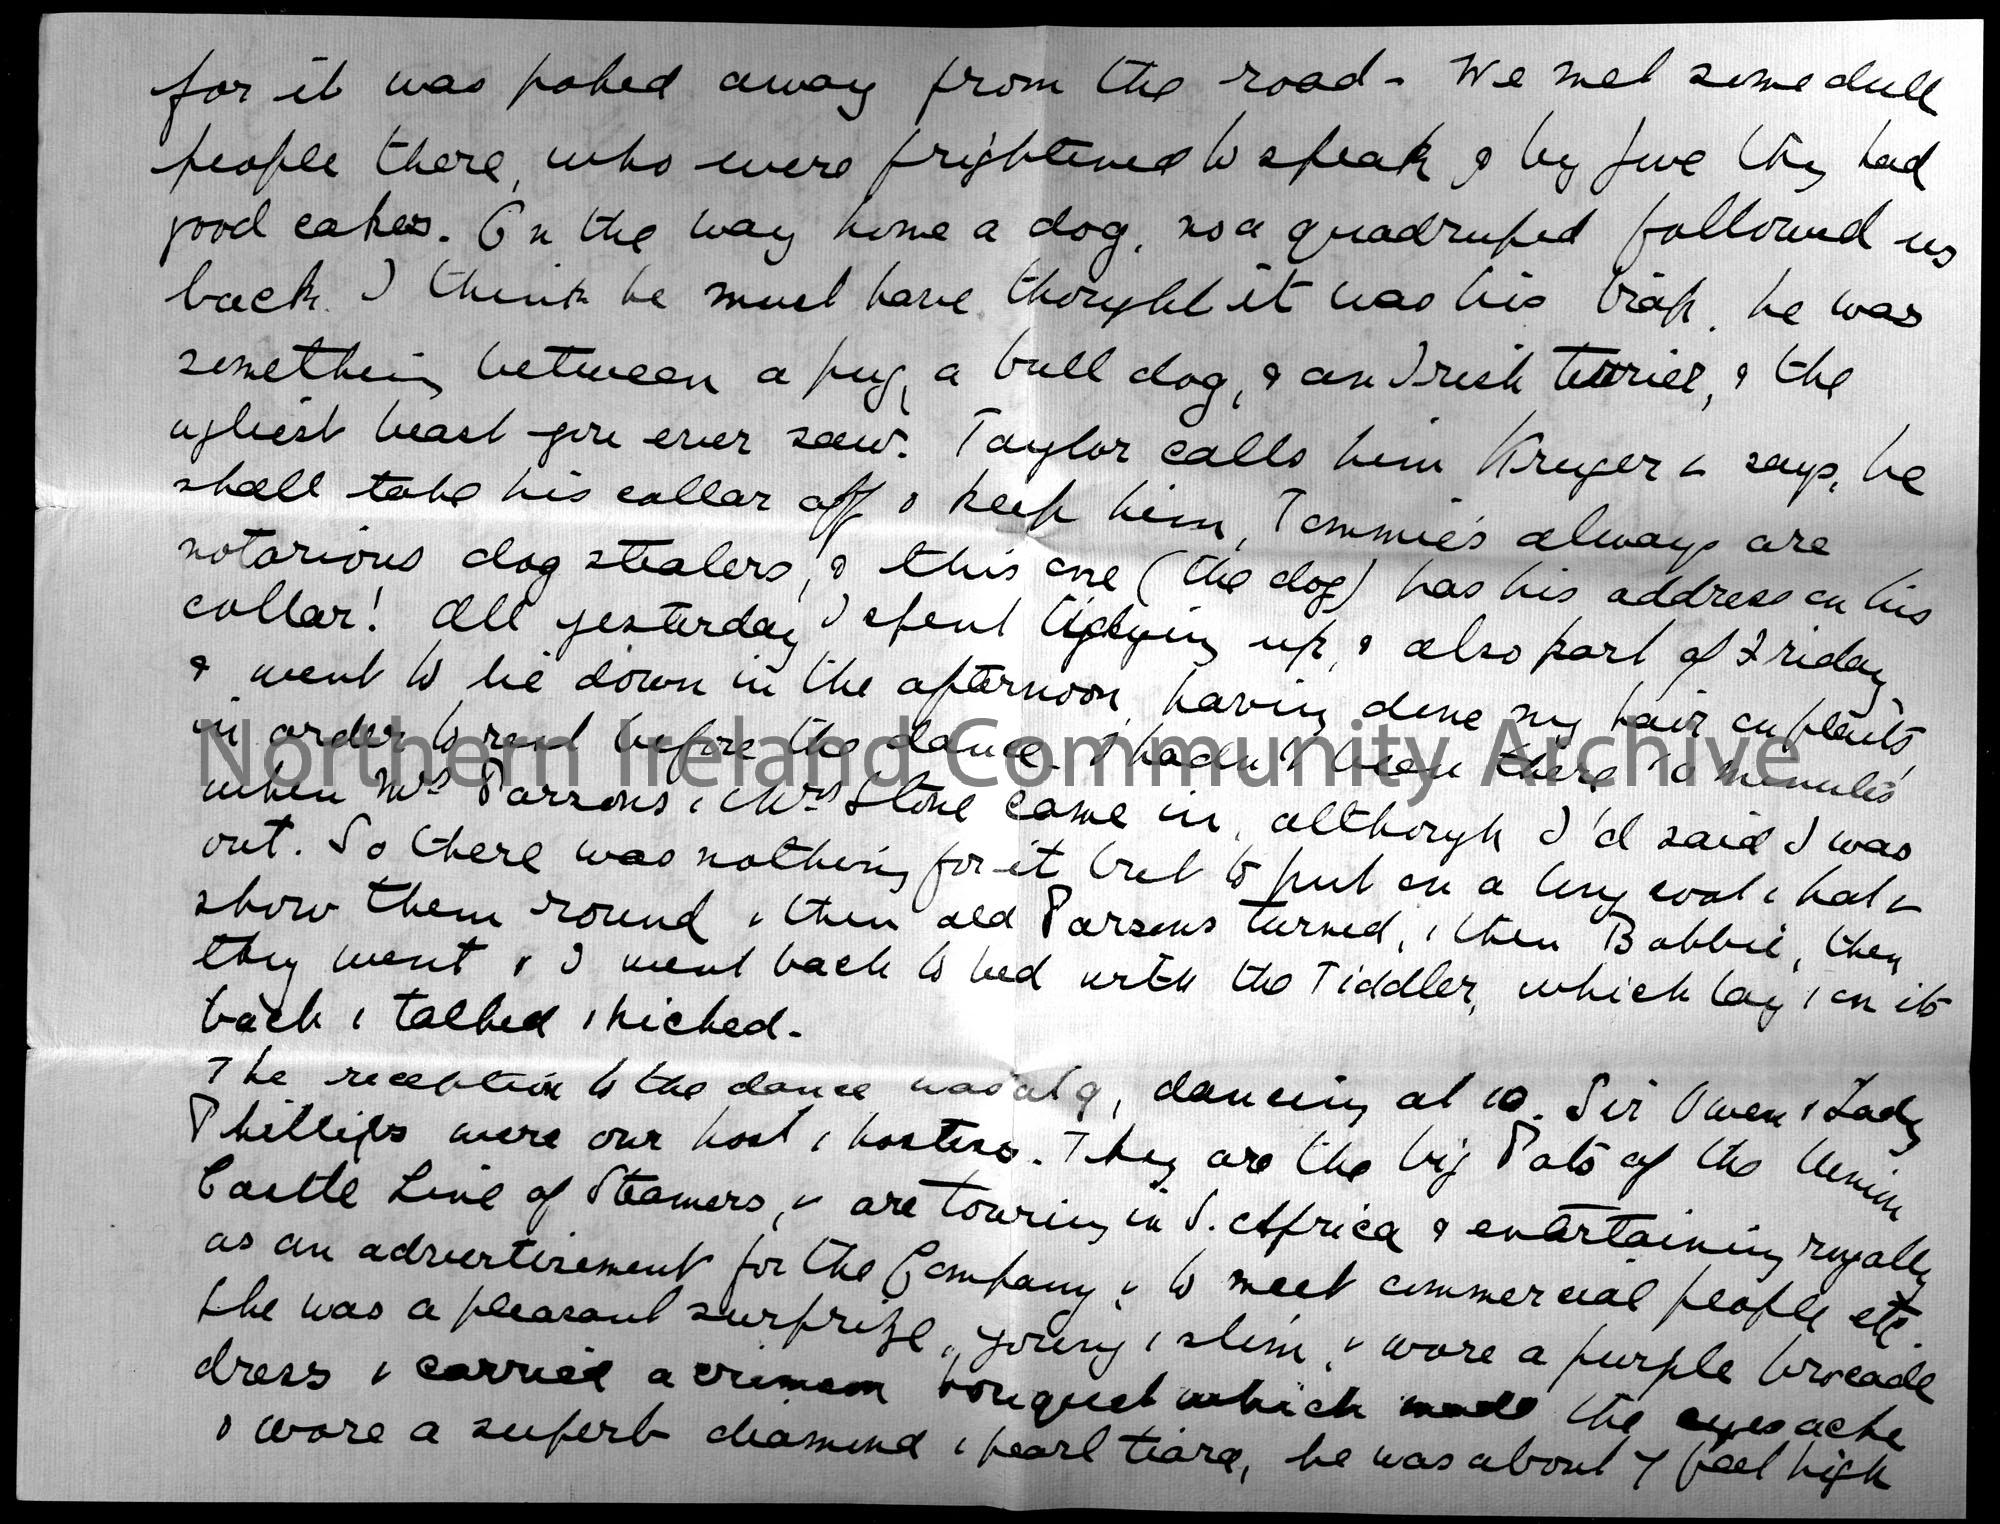 for it was poked away from the road - We met some dull
people there, who were frightened to speak & by Jove they had
good cakes. On the way home a dog, no a quadruped followed us
back. I think he must have thought it was his trap, he was
something between a pug, a bull dog, & an Irish terrier, & the
ugliest beast you ever saw. Taylor calls him Kruger & says, he
shall take his collar off & keep him, Tommie's always are
notorious dog stealers, & this one (the dog) has his address on his
collar! All yesterday I spent tidying up, & also part of Friday,
& went to lie down in the afternoon, having done my hair in plaits,
in order to rest before the dance. I hadn't been there 10 minutes
when Mrs Parsons & Mrs Stone came in, although I'd said I was
out. So there was nothing for it but to put on a long coat & hat &
show them round & then old Parsons turned, & then Bobbie, then
they went & I went back to bed with the Tiddler, which lay & on its
back & talked & kicked -
The reception to the dance was at 9, dancing at 10. Sir Owen & Lady
Phillips were our host & hostess. They are the big Pots of the Union
Castle Line of Steamers, & are touring in S. Africa & entertaining royally
as an advertisement for the Company & to meet commercial people etc.
She was a pleasant surprise, young & slim, & wore a purple brocade
dress & carried a crimson bouquet which made the eyes ache
& wore a superb diamond & pearl tiara, he was about 7 feet high
Northern Ireland Community Archive